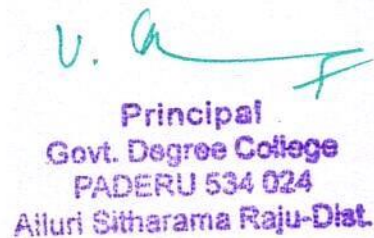 V.
Principal
Govt. Degree College
PADERU 534 024
Alluri Sitharama Raju-Dist.